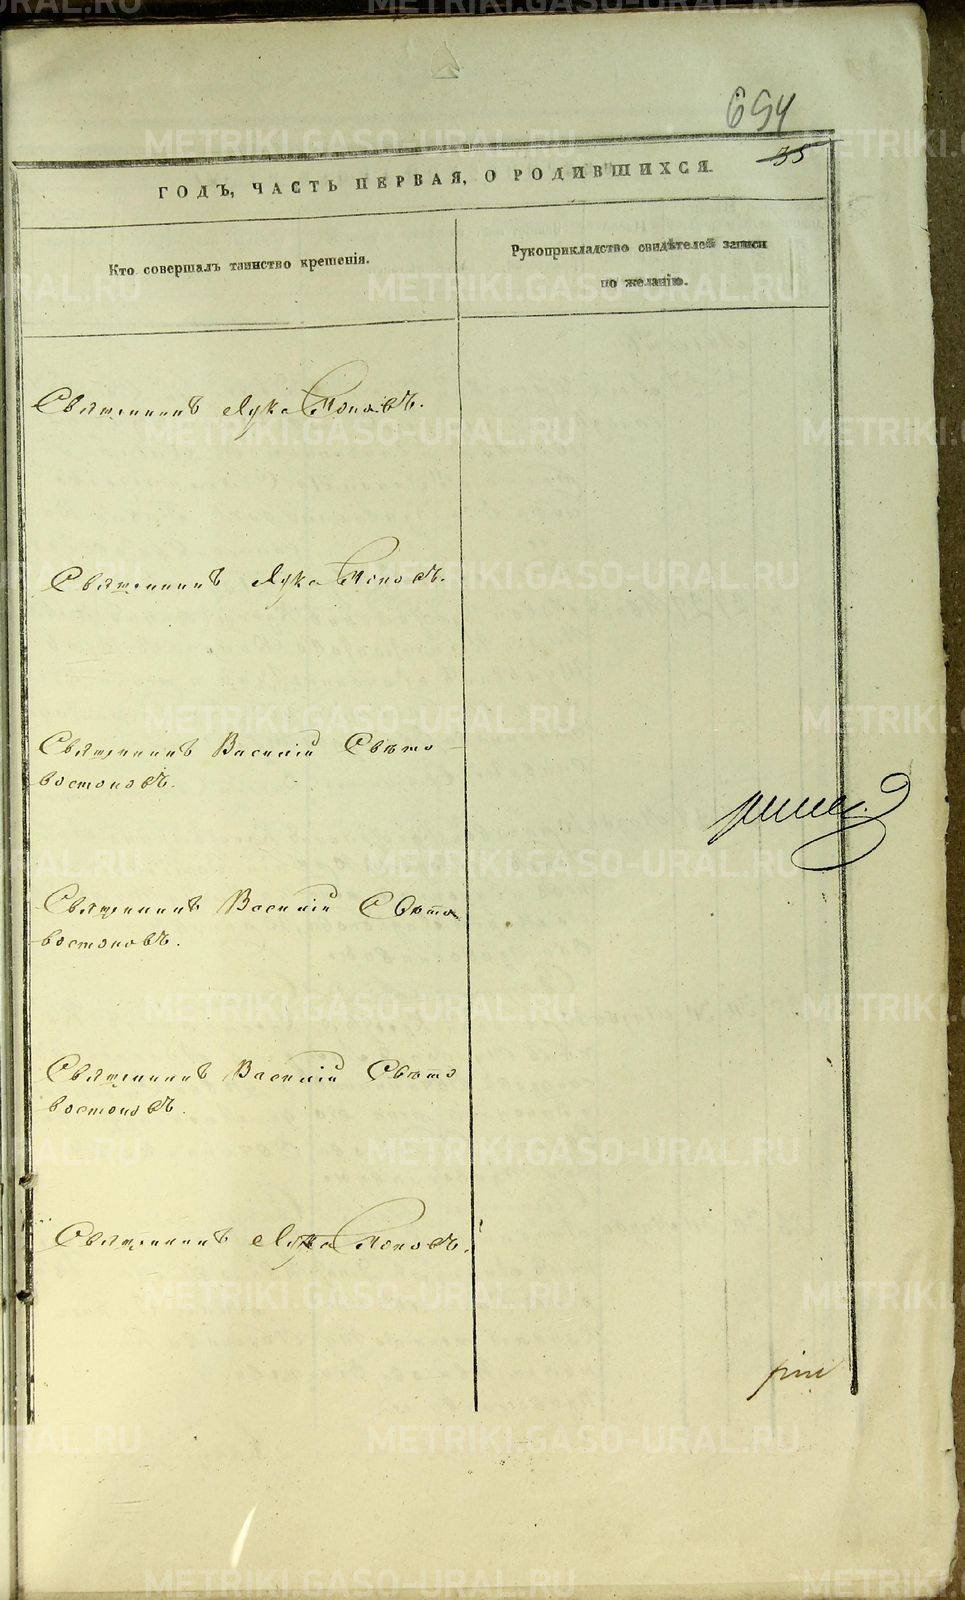 654
35
ГОДЪ, ЧАСТЬ ПЕРВАЯ, О РОДИВШИХСЯ.
Кто совершалъ таинство крещенія.
Рукоприкладство свидѣтелей записи
по желанію.
Священникъ Лука Поповъ.
Священникъ Лука Поповъ.
Священникъ Василій Свѣто
востоковъ.
Священникъ Василій Свѣто
востоковъ.
Священникъ Василій Свѣто
востоковъ.
Священникъ Лука Поповъ.
METRIKI.GASO-URAL.RU